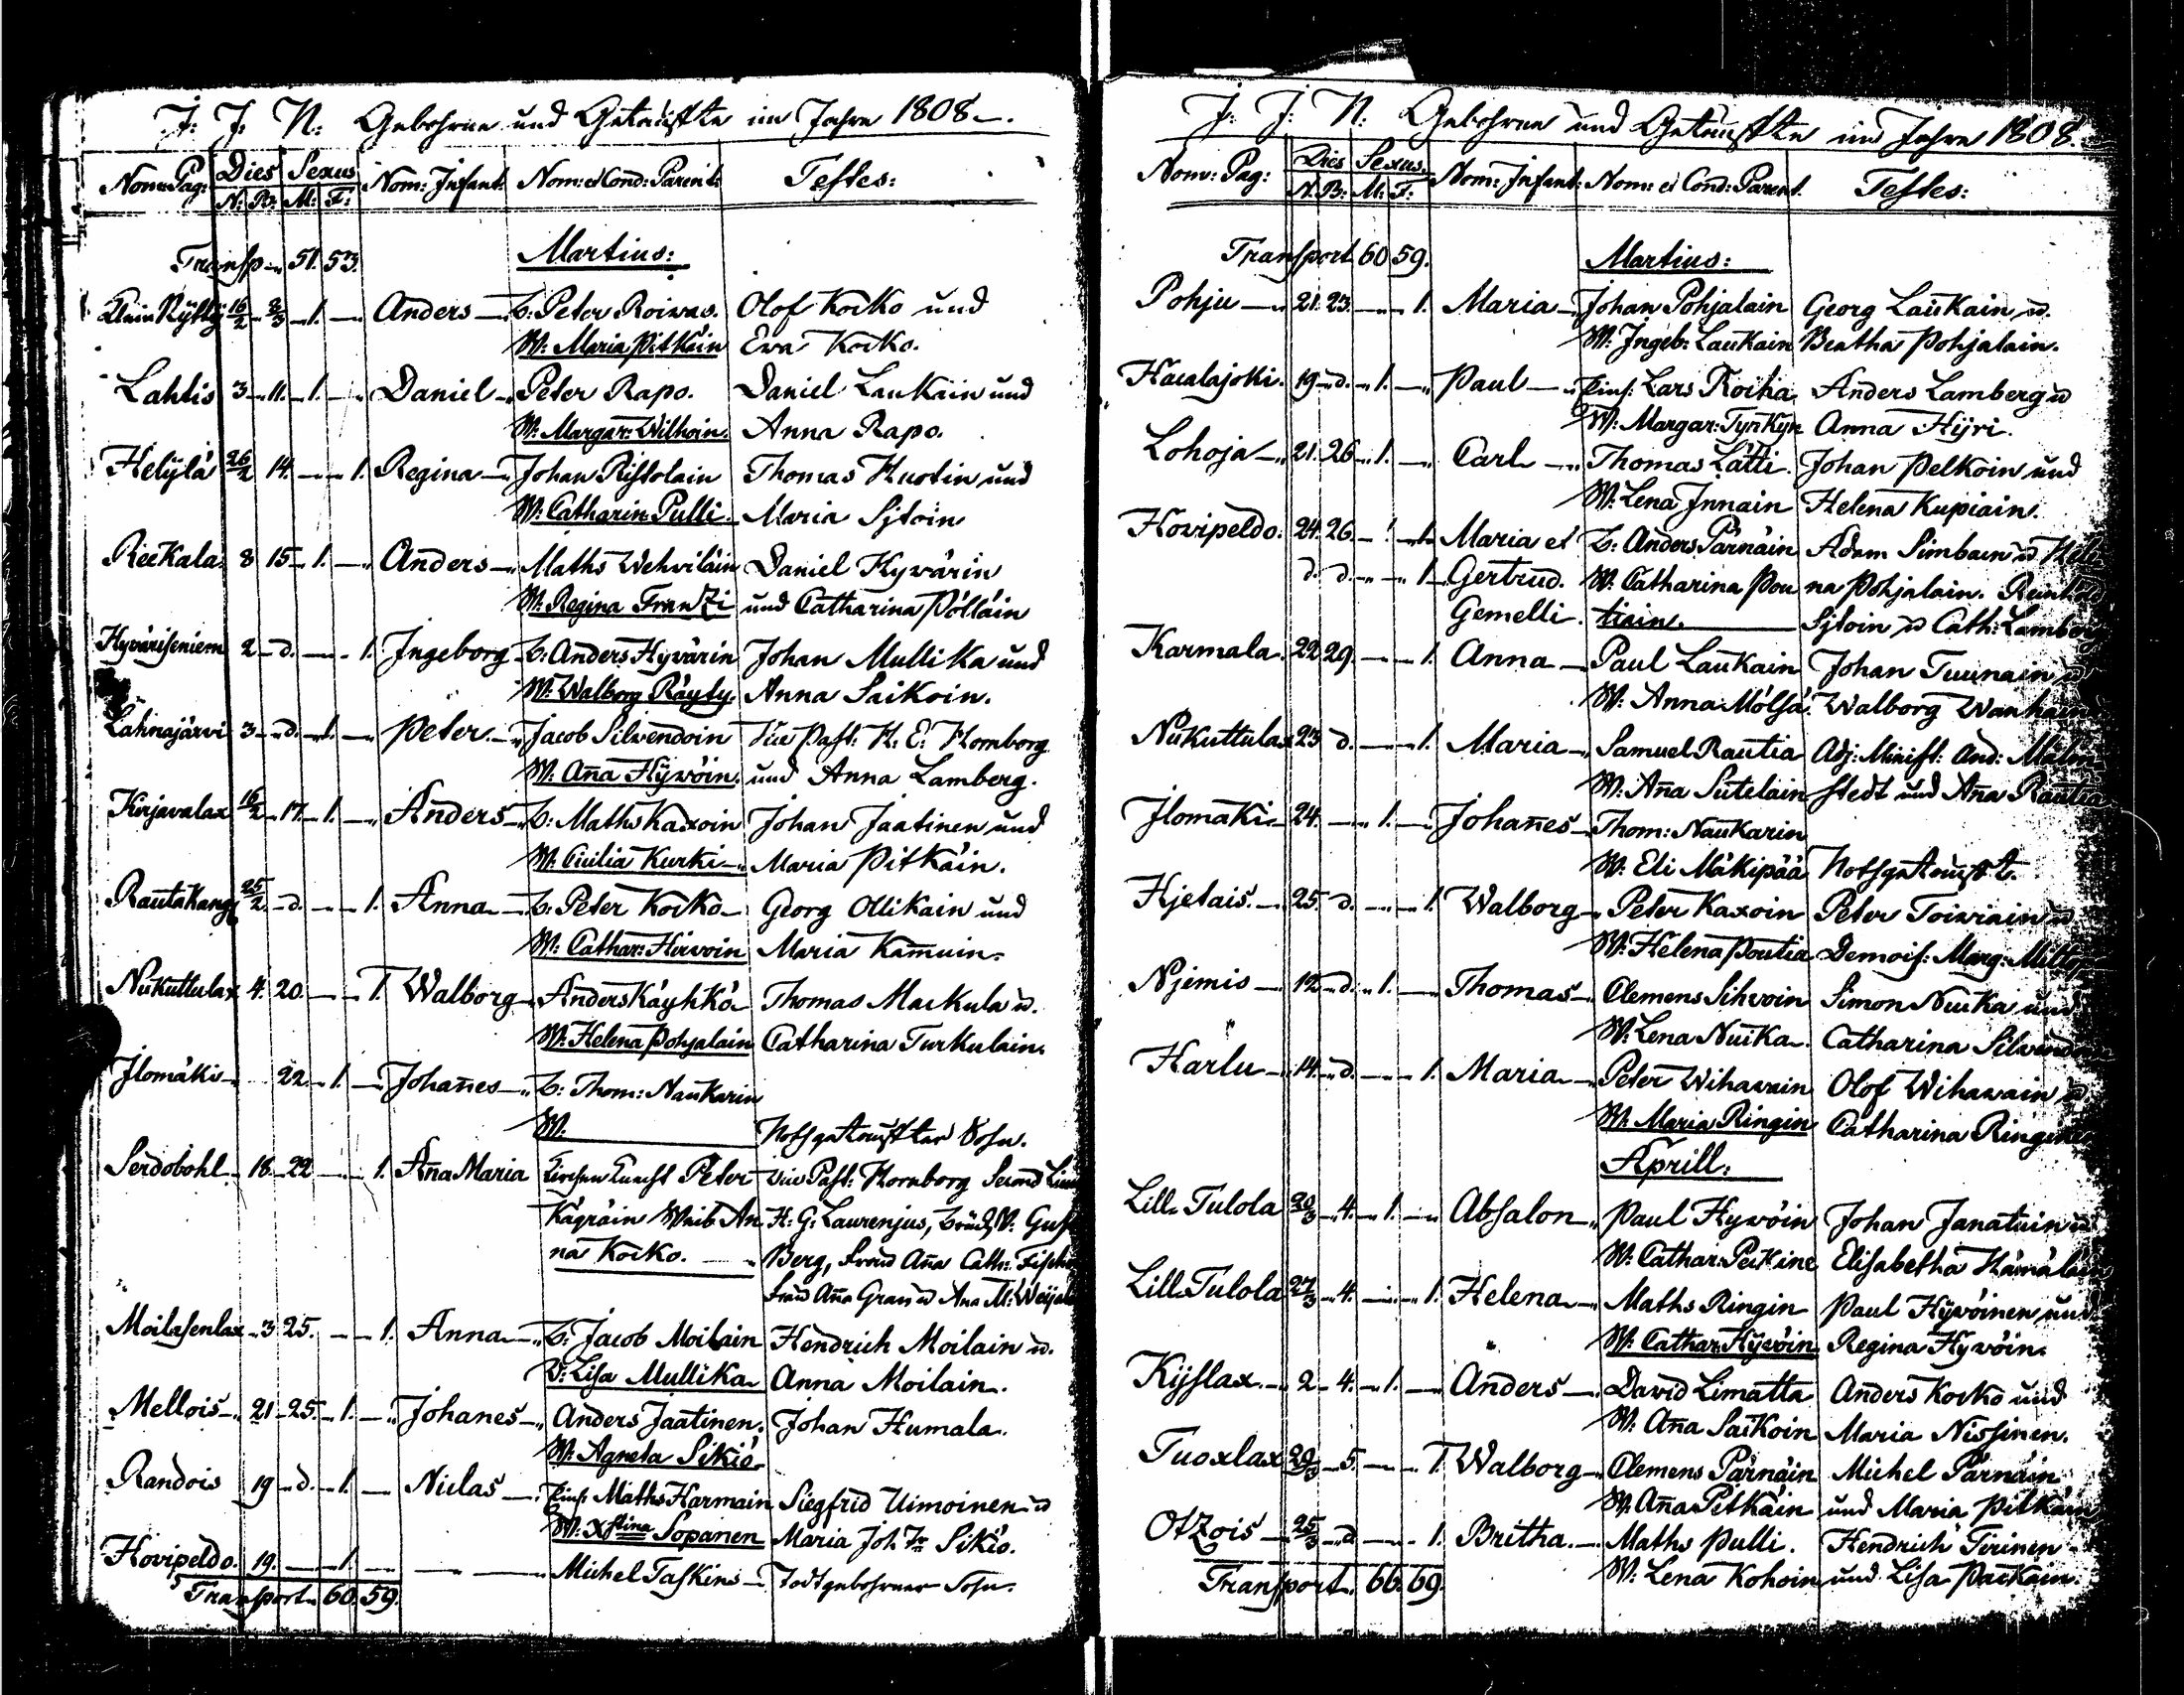 J: J: N: Gebohrne und Getaufte im Jahre 1808.
Nom: Pag: Dies Sexus Nom: Infant: Nom: et Cond: Parent: Testes:
N: B: M: F:
Transp 51. 53. Martius:
Klein Rytty 16/2 3/3 1. Anders L: Peter Roivas. Olof Kocko und
W: Maria Pitkäin Eva Kocko.
Lahtis 3 11. 1. Daniel Peter Rapo. Daniel Laukain und
W: Margar: Wilhoin. Anna Rapo.
Helylä 26/2 14. 1. Regina Johan Ristolain Thomas Huotin und
W: Catharin Pulli. Maria Sjtoin
Reekala 8 15 1. Anders Maths Wehviläin Daniel Hyvärin
W: Regina Frantzi und Catharina Pölläin
Hyväriseniem 2 d. 1. Ingeborg L: Anders Hyvärin Johan Mullika und
W: Walborg Räyty. Anna Saikoin.
Lahnajärvi 3 d. 1. Peter Jacob Silvendoin Vice Past: H: E: Hornborg
W: Aña Hÿvöin. und Anna Lamberg.
Kirjavalax 16/2 17. 1. Anders L: Maths Kaxoin Johan Jaatinen und
W: Cicilia Kurki Maria Pitkäin.
Rautakang 25/2 d. 1. Anna L: Peter Kocko Georg Ollikain und
W: Cathar: Hirvoin Maria Kamuin.
Nukuttulax 4. 20. 1. Walborg Anders Käyhkö Thomas Markula u.
W: Helena Pohjalain Catharina Turkulain.
Ilomäki 22 1. Johañes L: Thom: Naukarin
W. Nothgetaufter Sohn.
Serdobohl 18. 22 1. Aña Maria Peter Vice Past: Hornborg Second
Kägräin Weib An H: G: Laurenjus,
na Kocko. Berg, Aña Cath: Fisch
Aña Gran u Ana M:
Moilasenlax 3 25. 1. Anna L: Jacob Moilain Hendrich Moilain u.
W: Lisa Mullika Anna Moilain.
Mellois 21 25. 1. Johanes Anders Jaatinen. Johan Humala.
W: Agneta Sikiö
Randois 19 d. 1. Niclas Maths Harmain Siegfrid Uimoinen u
W: Xstina Sopanen Maria Joh Sikiö.
Hovipeldo. 19. 1. Michel Taskins Todtgebohrner Sohn.
Transport 60. 59.
J: J: N: Gebohrne und Getaufte im Jahre 1808.
Nom: Pag: Dies Sexus. Nom: Infant: Nom: et Cond: Parent. Testes:
N. B: M: F:
Transport 60 59. Martius:
Pohju 21. 23. 1. Maria Johan Pohjalain Georg Laukain u.
W: Ingeb: Laukain Beatha Pohjalain.
Haalajoki. 19 d. 1. Paul Lars Rotha Anders Lamberg u
W: Margar: Tynkyn Anna Hyri.
Lohoja 21. 26 1. Carl Thomas Lätti Johan Pelkoin und
W: Lena Innain Helena Kupiain.
Hovipeldo. 24. 26. 1. Maria et L: Anders Pärnäin Adam Simbain u Hele
d. d. 1. Gertrud. W: Catharina Pou na Pohjalain. Reinhold
Gemelli. tiain. Sjtoin u Cath: Lamberg
Karmala 22 29. 1. Anna Paul Laukain Johan Tuunain u
W: Anna Mölsä. Walborg Wanhain
Nukuttulax 23 d. 1. Maria Samuel Rautia Adj: Minist: And: Malm
W: Aña Sutelain stedt und Aña Rautia
Ilomäki 24. 1. Johañes Thom: Naukarin
W: Eli Mäkipää Nothgetauft.
Hjetais. 25. d. 1. Walborg Peter Kaxoin Peter Toiviain u
W: Helena Poutia Demois: Marg:
Njemis 12 d. 1. Thomas Clemens Sihvoin Simon Nuika und
W: Lena Nuika. Catharina Silvend
Harlu 14. d. 1. Maria Peter Wihavain Olof Wihavain u.
W: Maria Ringin Catharina Ringin
Aprill:
Lill Tulola 20/3 4. 1. Absalon Paul Hyvöin Johan Janatuin u
W: Cathar: Peikine Elisabetha Hämäläin
Lill Tulola 27/3 4. 1. Helena Maths Ringin Paul Hyvöinen und
W: Cathar: Hÿvöin Regina Hyvöin.
Kijslax. 2 4. 1. Anders David Limatta Anders Kocko und
W: Aña Saikoin Maria Nissinen.
Tuoxlax 29/3 5. 1. Walborg Clemens Pärnäin Michel Pärnäin
W: Aña Pitkäin und Maria Pitkäin
Otzois 25/3 d 1. Britha. Maths Pulli. Hendrich Tirinen
W: Lena Kohoin und Lisa Packain.
Transport. 66. 69.